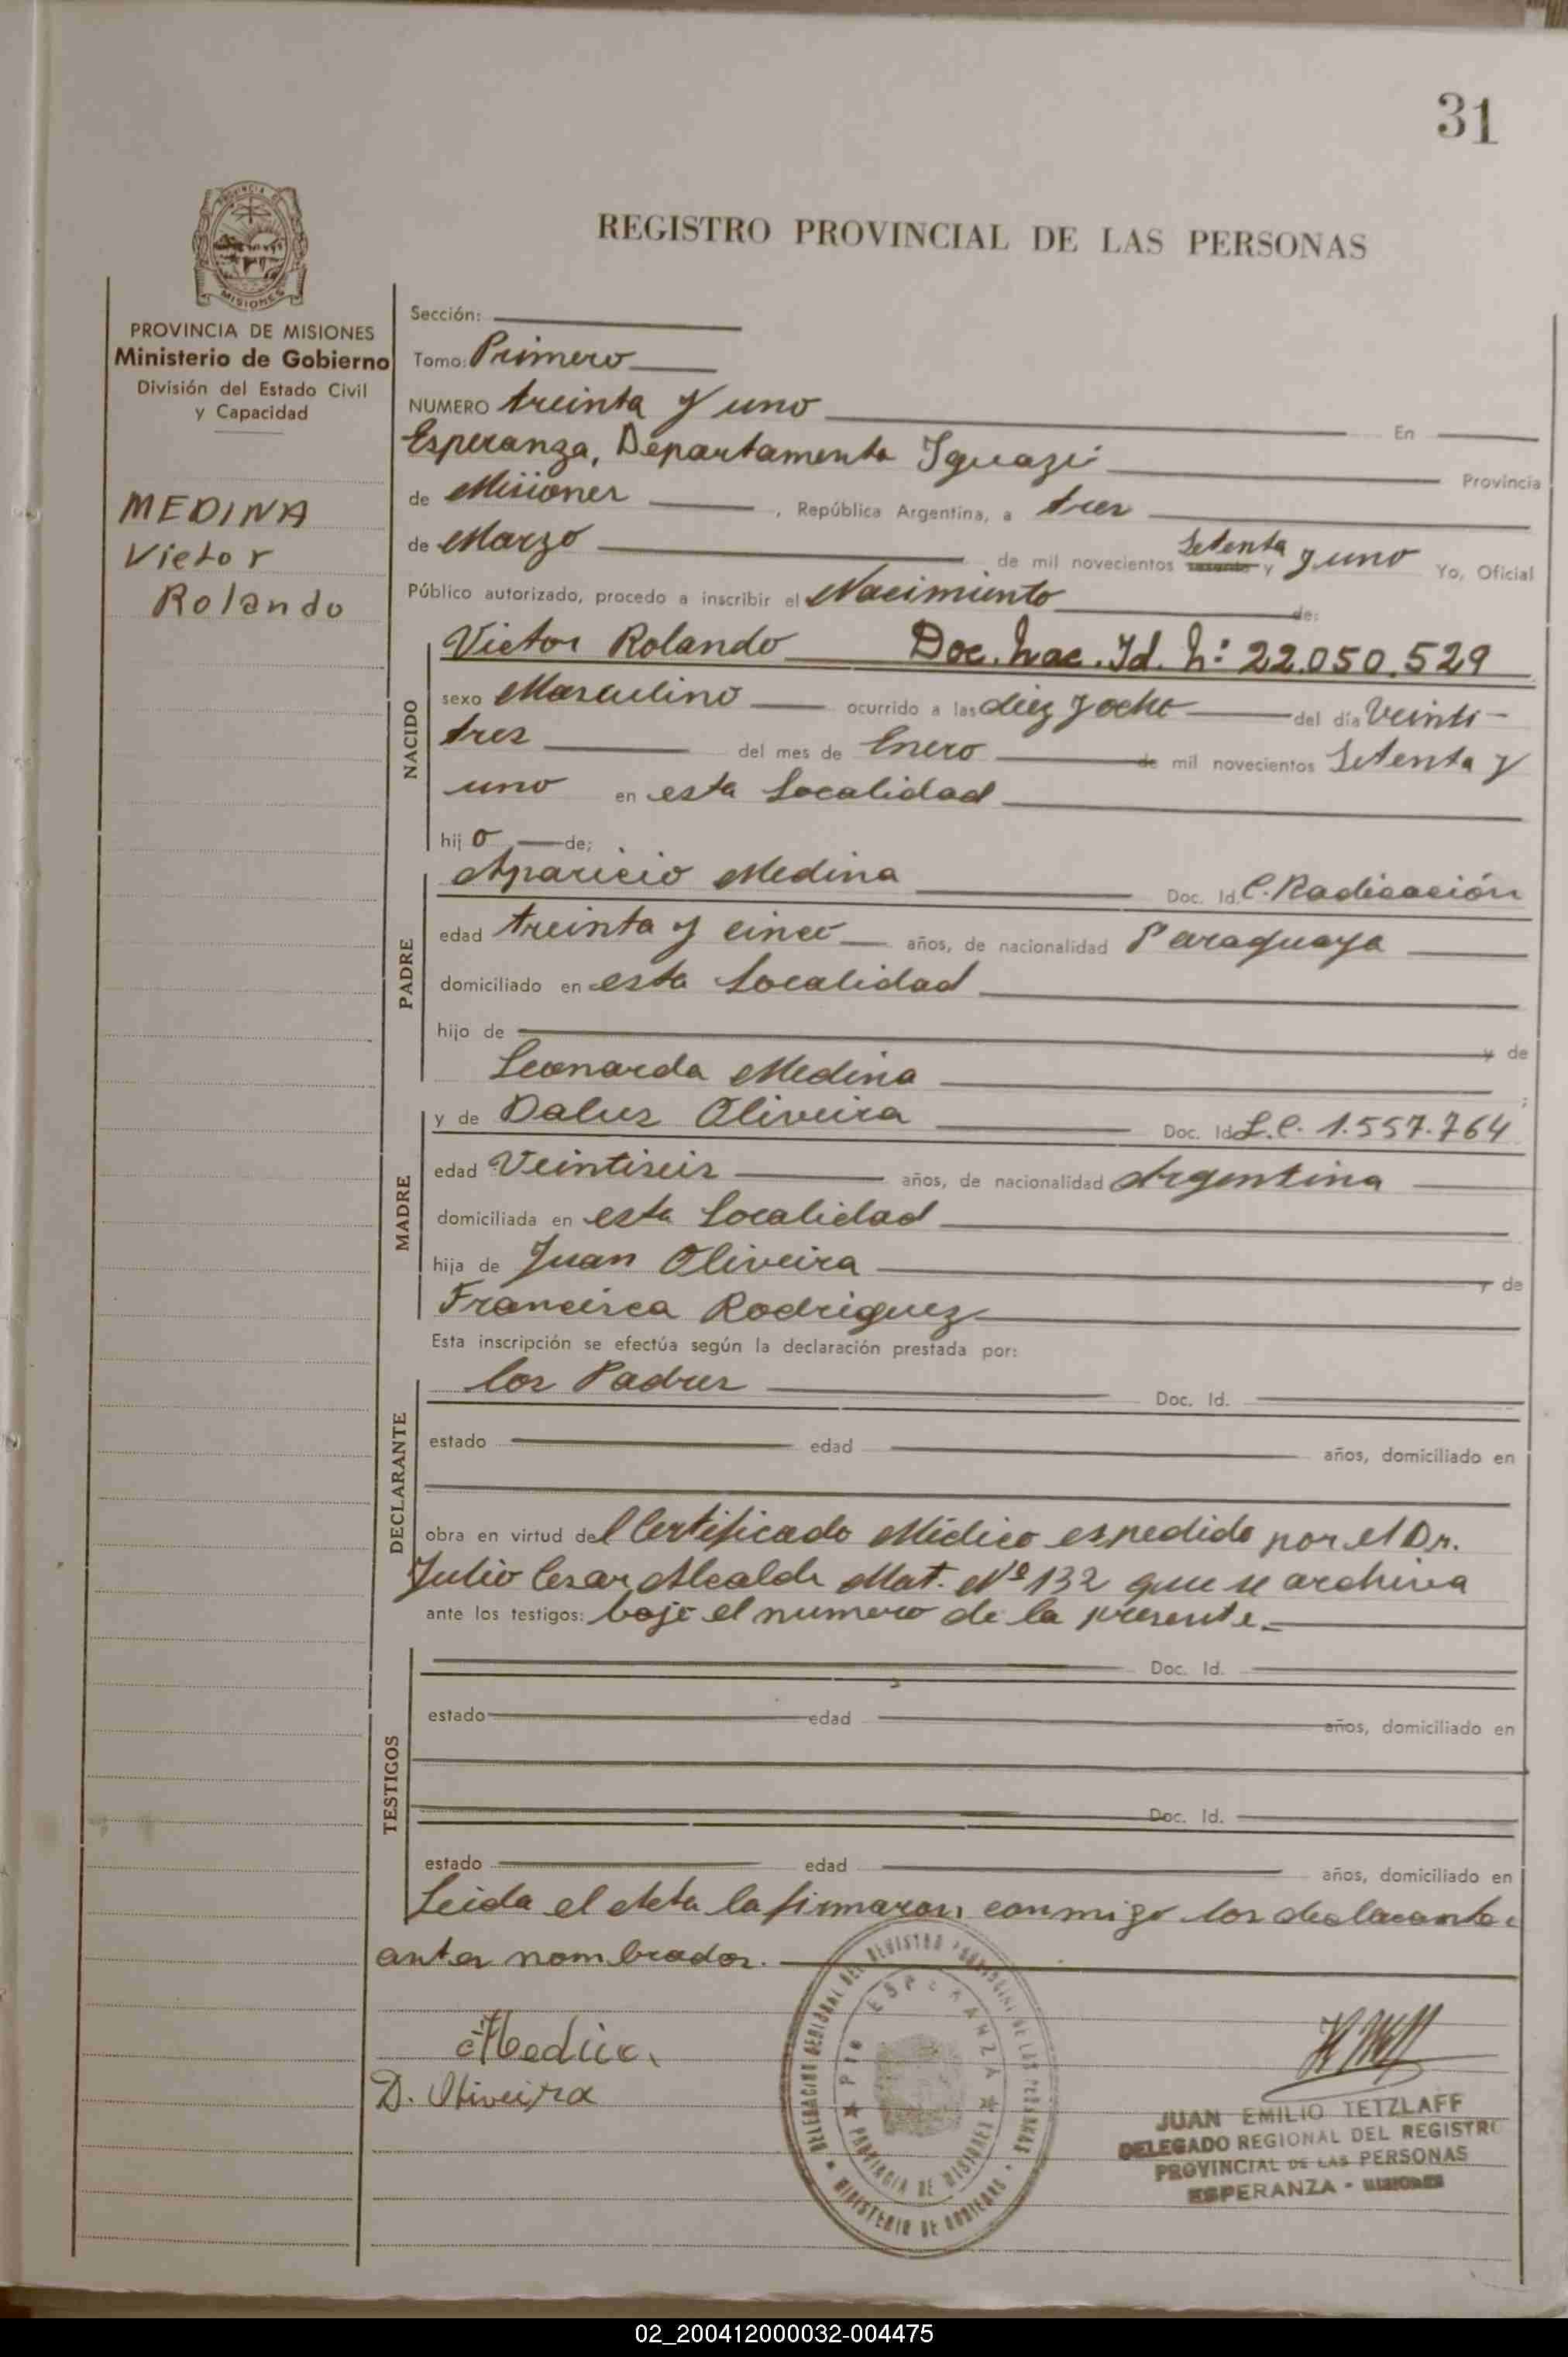 31
REGISTRO PROVINCIAL DE LAS PERSONAS
PROVINCIA DE MISIONES
Ministerio de Gobierno
División del Estado Civil
y Capacidad
MEDINA
Victor
Rolando
Sección:
Tomo: Primero
NUMERO treinta y uno En
Esperanza, Departamento Iguazú Provincia
de Misiones , República Argentina, a tres
de Marzo de mil novecientos setenta y uno Yo, Oficial
Público autorizado, procedo a inscribir el Nacimiento de:
NACIDO
Victor Rolando Doc. Nac. Id. N: 22.050.529
sexo Masculino ocurrido a las diez y ocho del día Veinti-
tres del mes de Enero de mil novecientos Setenta y
uno en esta Localidad
hijo de;
PADRE
Aparicio Medina Doc. Id. C. Radicación
edad treinta y cinco años, de nacionalidad Paraguaya
domiciliado en esta Localidad
hijo de y de
Leonarda Medina ;
MADRE
y de Daluz Oliveira Doc. Id. L.C. 1.557.764
edad Veintiseis años, de nacionalidad Argentina
domiciliada en esta Localidad
hija de Juan Oliveira y de
Francisca Rodriguez
Esta inscripción se efectúa según la declaración prestada por:
DECLARANTE
los Padres Doc. Id.
estado edad años, domiciliado en
obra en virtud del Certificado Médico espedido por el Dr.
Julio Cesar Alcalde Mat. Nº 132 que se archiva
ante los testigos: bajo el numero de la presente.
TESTIGOS
Doc. Id.
estado edad años, domiciliado en
Doc. Id.
estado edad años, domiciliado en
Leida el Acta la firmaron conmigo los declarantes
antes nombrados.
Medina
D. Oliveira
DELEGACION REGIONAL DEL REGISTRO PROVINCIAL DE LAS PERSONAS
MINISTERIO DE GOBIERNO
Pto ESPERANZA
PROVINCIA DE MISIONES
JUAN EMILIO TETZLAFF
DELEGADO REGIONAL DEL REGISTRO
PROVINCIAL DE LAS PERSONAS
ESPERANZA - MISIONES
02_200412000032-004475